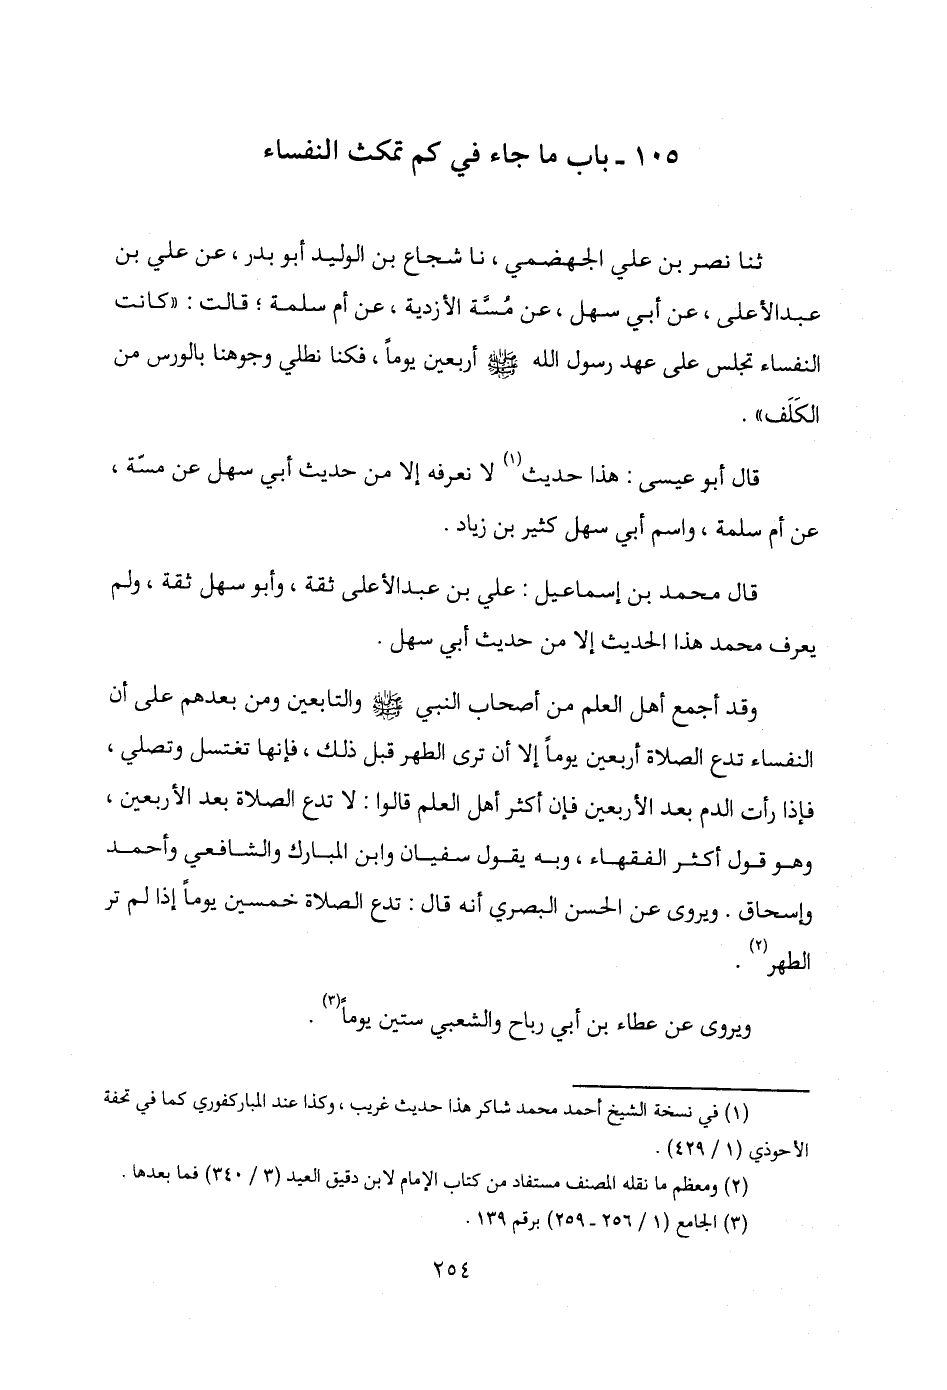 ١٠٥ ـ باب ما جاء في كم تمكث النفساء
ثنا نصر بن علي الجهضمي ، نا شجاع بن الوليد أبو بدر ، عن علي بن
عبدالأعلى ، عن أبي سهل ، عن مُسَّة الأزدية ، عن أم سلمة ؛ قالت : «كانت
النفساء تجلس على عهد رسول الله ﷺ أربعين يوماً ، فكنا نطلي وجوهنا بالورس من
الكَلَف» .
قال أبو عيسى : هذا حديث(١) لا نعرفه إلا من حديث أبي سهل عن مسّة ،
عن أم سلمة ، واسم أبي سهل كثير بن زياد .
قال محمد بن إسماعيل : علي بن عبدالأعلى ثقة ، وأبو سهل ثقة ، ولم
يعرف محمد هذا الحديث إلا من حديث أبي سهل .
وقد أجمع أهل العلم من أصحاب النبي ﷺ والتابعين ومن بعدهم على أن
النفساء تدع الصلاة أربعين يوماً إلا أن ترى الطهر قبل ذلك ، فإنها تغتسل وتصلي ،
فإذا رأت الدم بعد الأربعين فإن أكثر أهل العلم قالوا : لا تدع الصلاة بعد الأربعين ،
وهو قول أكثر الفقهاء ، وبه يقول سفيان وابن المبارك والشافعي وأحمد
وإسحاق . ويروى عن الحسن البصري أنه قال : تدع الصلاة خمسين يوماً إذا لم تر
الطهر(٢) .
ويروى عن عطاء بن أبي رباح والشعبي ستين يوماً(٣) .
(١) في نسخة الشيخ أحمد محمد شاكر هذا حديث غريب ، وكذا عند المباركفوري كما في تحفة
الأحوذي (١ / ٤٢٩) .
(٢) ومعظم ما نقله المصنف مستفاد من كتاب الإمام لابن دقيق العيد (٣ / ٣٤٠) فما بعدها .
(٣) الجامع (١ / ٢٥٦ ـ ٢٥٩) برقم ١٣٩ .
٢٥٤